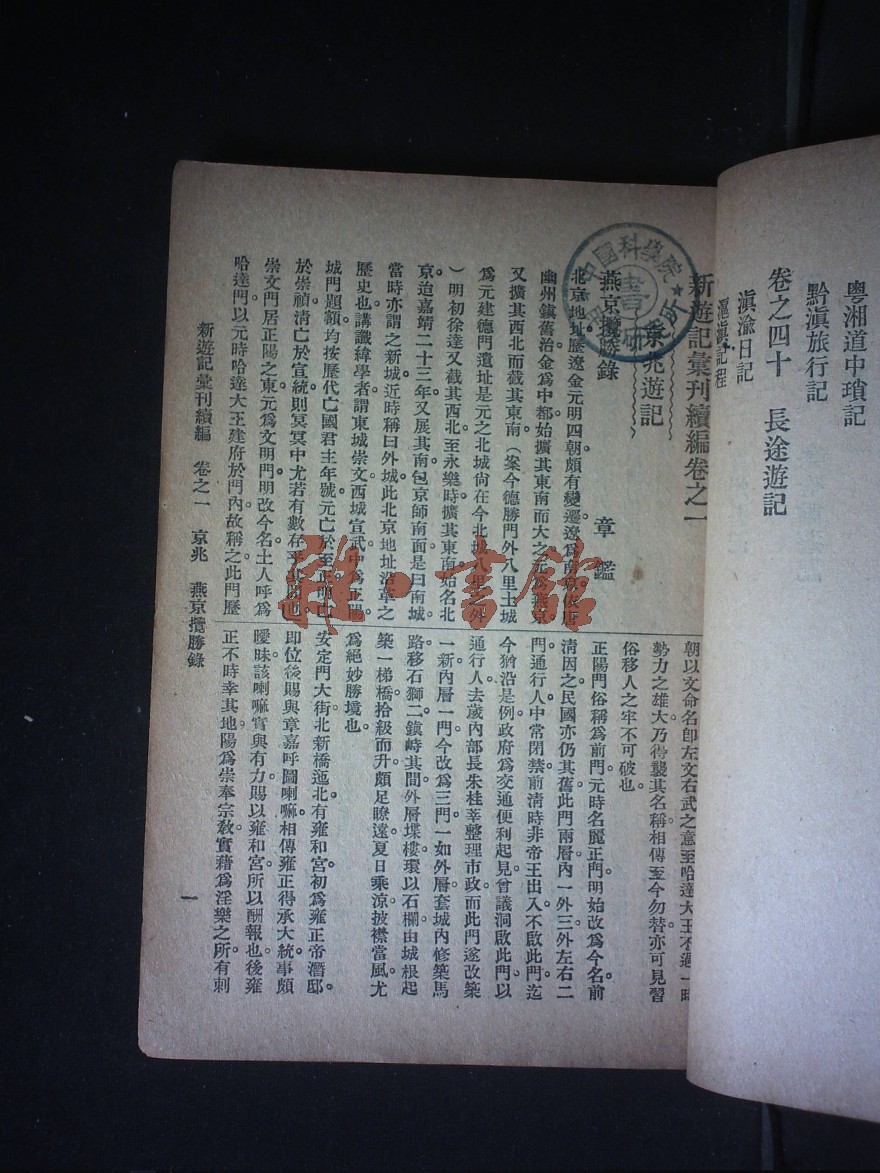 粵湘道中瑣記
黔滇旅行記
卷之四十　長途遊記
滇渝日記
滬滇記程
新遊記彙刊續編卷之一
京兆遊記
燕京攬勝錄
章鑑
北京地址歷遼金元明四朝頗有變遷遼爲南京故唐
幽州鎮舊治金爲中都始擴其東南而大之元爲燕京
又擴其西北而截其東南（案今德勝門外八里土城
爲元建德門遺址是元之北城尙在今北城八里之外
）明初徐達又截其西北至永樂時擴其東南始名北
京迨嘉靖二十三年又展其南包京師南面是曰南城
當時亦謂之新城近時稱曰外城此北京地址沿革之
歷史也講讖緯學者謂東城崇文西城宣武中爲正陽
城門題額均按歷代亡國君主年號元亡於至正明亡
於崇禎淸亡於宣統則冥冥中尤若有數存乎其間也
崇文門居正陽之東元爲文明門明改今名土人呼爲
哈達門以元時哈達大王建府於門內故稱之此門歷
朝以文命名卽左文右武之意至哈達大王不過一時
勢力之雄大乃得襲其名稱相傳至今勿替亦可見習
俗移人之牢不可破也。
正陽門俗稱爲前門元時名麗正門明始改爲今名前
淸因之民國亦仍其舊此門兩層內一外三外左右二
門通行人中常閉禁前淸時非帝王出入不啟此門迄
今猶沿是例政府爲交通便利起見曾議洞啟此門以
通行人去歲內部長朱桂莘整理市政而此門遂改築
一新內層一門今改爲三門一如外層套城內修築馬
路移石獅二鎮峙其間外層堞樓環以石欄由城根起
築一梯橋拾級而升頗足瞭遠夏日乘涼披襟當風尤
爲絕妙勝境也。
安定門大街北新橋迤北有雍和宮初爲雍正帝潛邸。
卽位後賜與章嘉呼圖喇嘛相傳雍正得承大統事頗
曖昧該喇嘛實與有力賜以雍和宮所以酬報也後雍
正不時幸其地陽爲崇奉宗敎實藉爲淫樂之所有刺
新遊記彙刊續編　卷之一　京兆　燕京攬勝錄
一
中國科學院